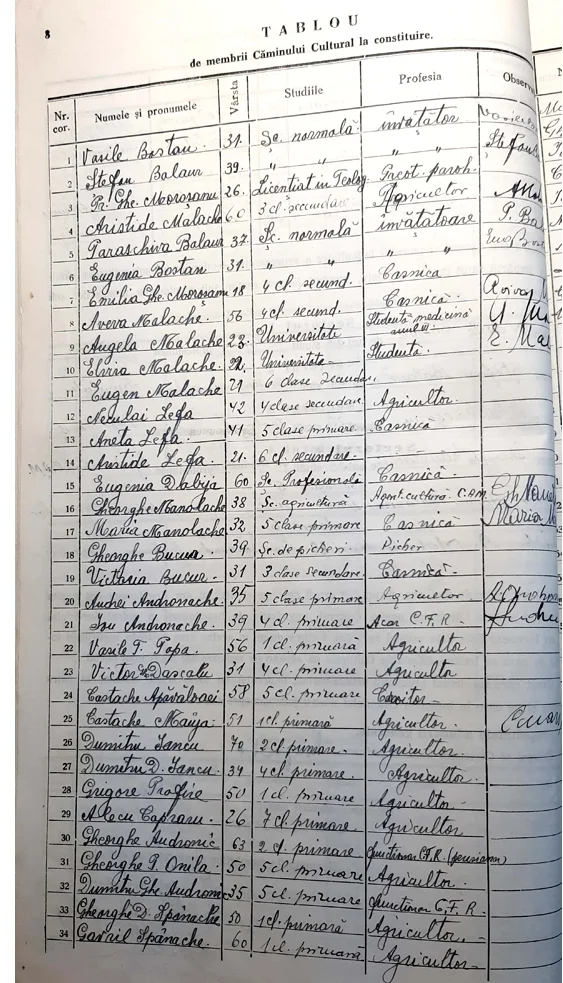 8
TABLOU
de membrii Căminului Cultural la constituire.
Nr. cor. Numele și pronumele Vârsta Studiile Profesia Observ
1 Vasile Bostan. 31. Șc. normală învătător
2 Ștefan Balaur 39. " " " "
3 Pr. Ghe. Moroșanu 26. Licentiat in Teolog. Preot. paroh.
4 Aristide Malache 60 3 cl secundare Agricultor
5 Paraschiva Balaur 37. Șc. normală învătătoare P. Ba
6 Eugenia Bostan 31. " " " "
7 Emilia Ghe. Moroșanu 18 4 cl. secund. Casnica
8 Aveva Malache. 56 4 cl. secund. Casnică.
9 Angela Malache 23. Universitate Studentă medicină anul III.
10 Elvira Malache. 22. Universitate Studentă. E. Mal
11 Eugen Malache 21 6 clase secundar.
12 Neculai Lefa 42 4 clase secundar. Agricultor.
13 Aneta Lefa. 41 5 clase primare. Casnică
14 Aristide Lefa. 21. 6 cl. secundare.
15 Eugenia Dabija 60 Șc. Profesională Casnică
16 Gheorghe Manolache 38 Șc. agricultură Agent. cultura C.A.M.
17 Maria Manolache 32 5 clase primare Casnică Maria M
18 Gheorghe Bucur. 39 Șc. de picheri. Picher
19 Victoria Bucur. 31 3 clase secundare. Casnică.
20 Andrei Andronache. 35 5 clase primare Agricultor
21 Ion Andronache. 39 4 cl. primare Acar C.F.R.
22 Vasile T. Popa. 56 1 cl. primară Agricultor
23 Victor Dascalu 31 4 cl. primare Agricultor
24 Costache Apăvăloaei 58 5 cl. primare
25 Costache 51 1 cl. primară Agricultor.
26 Dumitru Iancu 70 2 cl. primare. Agricultor.
27 Dumitru D. Iancu. 34 4 cl. primare. Agricultor.
28 Grigore Profire 50 1 cl. primare Agricultor.
29 Alecu 26 7 cl. primare. Agricultor
30 Gheorghe Andronic 63 2 cl. primare functionar C.F.R. (pensionar)
31 Gheorghe P. Onila. 50 5 cl. primare Agricultor.
32 Dumitru Ghe. Andronic 35 5 cl. primare functionar C.F.R.
33 Gheorghe D. Spânache 50 1 cl. primară Agricultor.
34 Gavril Spânache. 60 1 cl. primară Agricultor